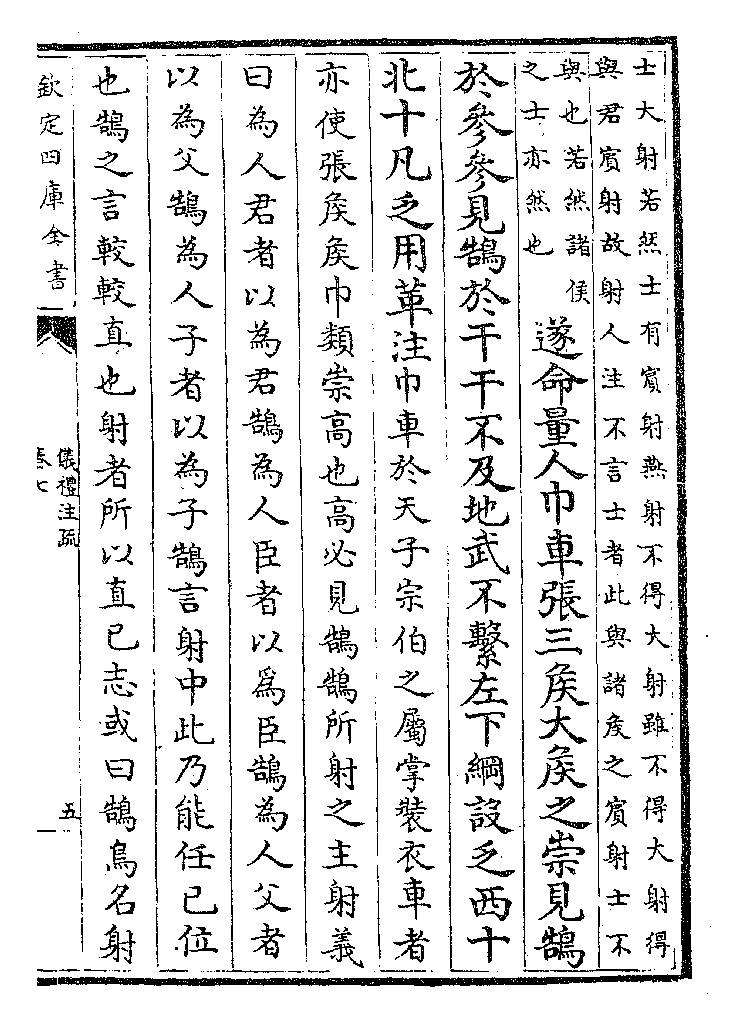 士大射若然士有賓射燕射不得大射雖不得大射得
與君賓射故射人注不言士者此與諸侯之賓射士不
與也若然諸侯
之士亦然也
遂命量人巾車張三侯大侯之崇見鵠
於參參見鵠於干干不及地武不繫左下綱設乏西十
北十凡乏用革注巾車於天子宗伯之屬掌裝衣車者
亦使張侯侯巾類崇高也高必見鵠鵠所射之主射義
曰為人君者以為君鵠為人臣者以為臣鵠為人父者
以為父鵠為人子者以為子鵠言射中此乃能任已位
也鵠之言較較直也射者所以直已志或曰鵠鳥名射
欽定四庫全書
儀禮注疏
卷七
五